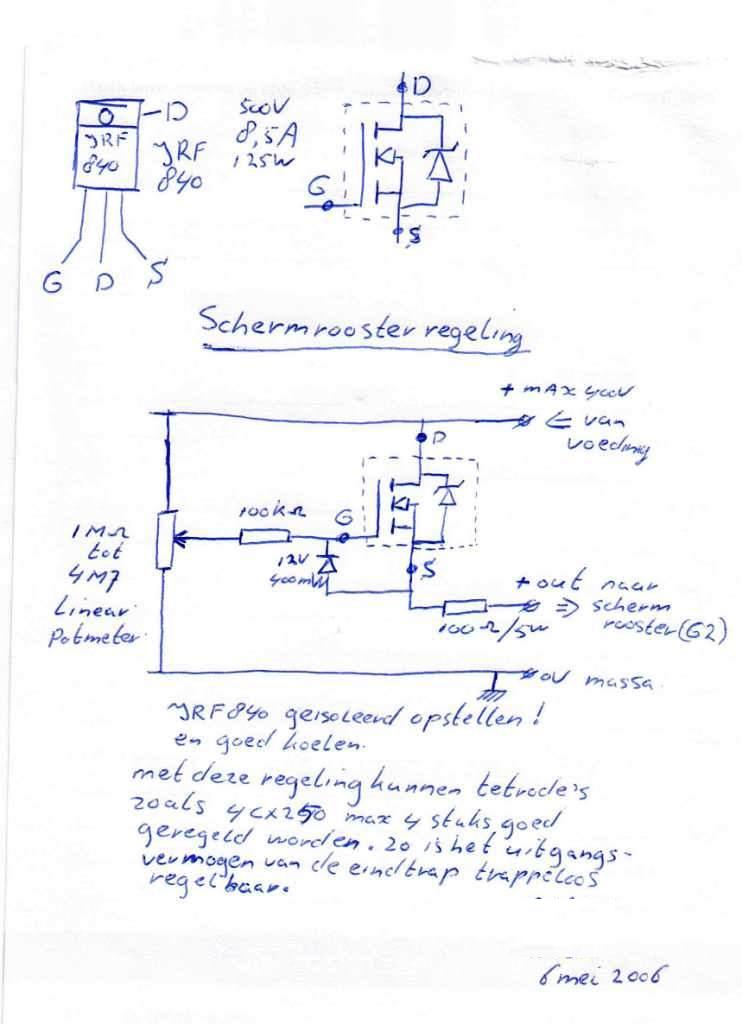 D
IRF
840
IRF
840
500V
8,5A
125W
G D S
D
G
S
Schermroosterregeling
+ MAX 400V
<= van
voeding
D
100kΩ
G
1MΩ
tot
4M7
Linear
Potmeter.
12V
400mW
S
+ out naar
=> scherm
rooster(G2)
100Ω/5W
0V massa.
IRF840 geisoleerd opstellen!
en goed koelen.
met deze regeling kunnen tetrode's
zoals 4cx250 max 4 stuks goed
geregeld worden. zo is het uitgangs-
vermogen van de eindtrap trappeloos
regelbaar.
6 mei 2006